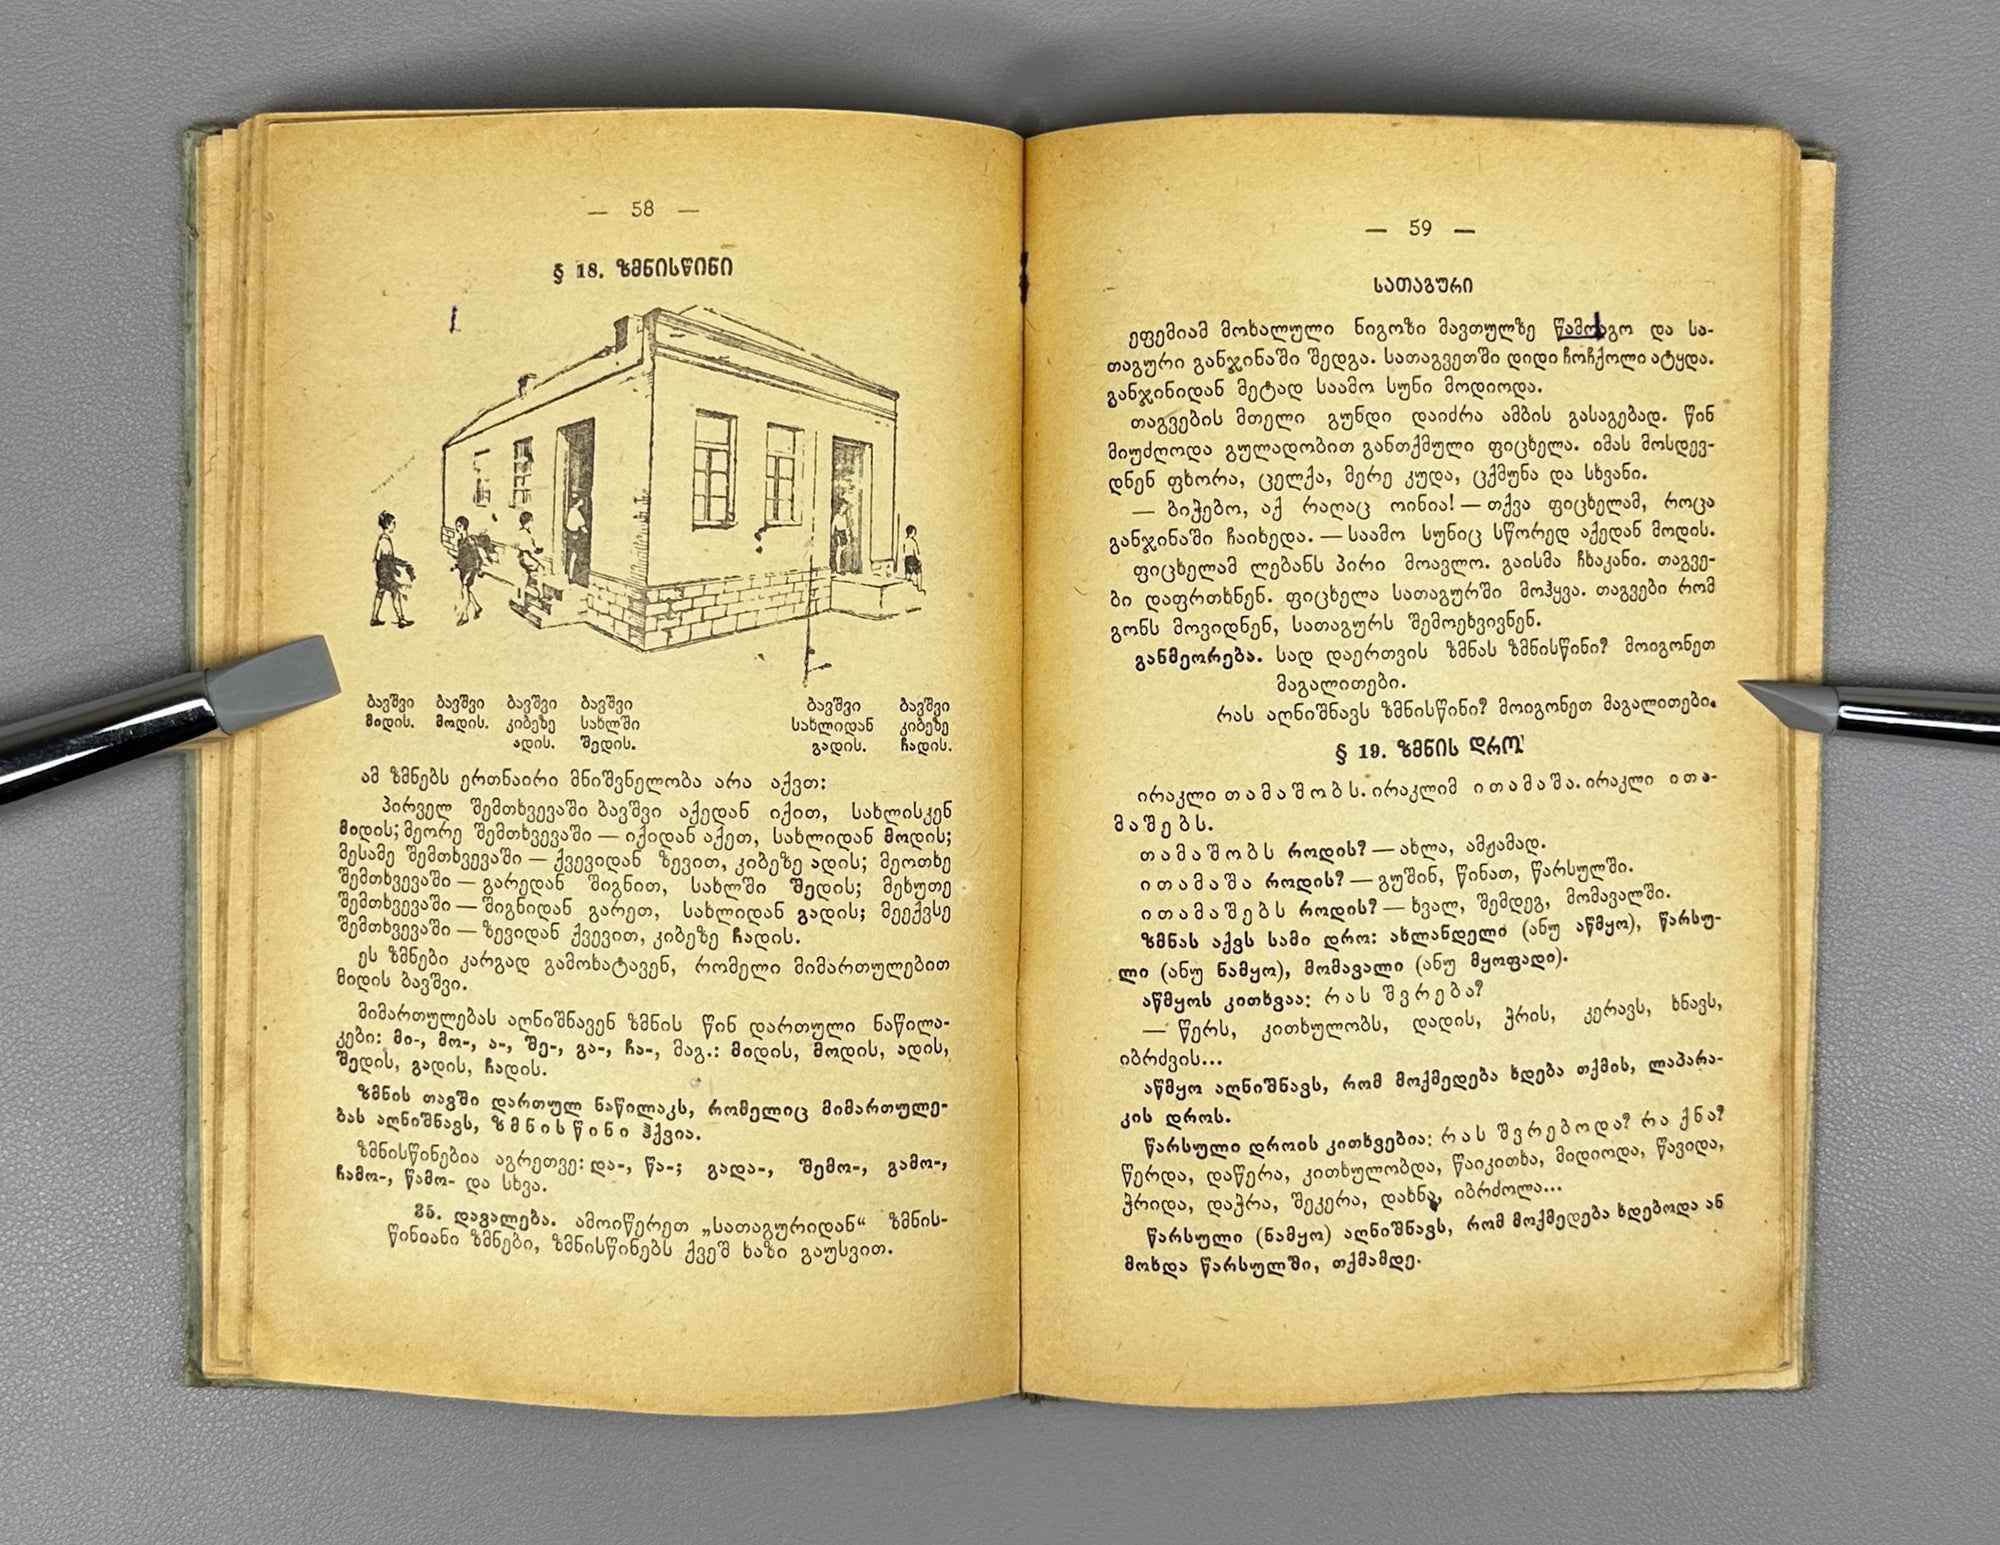 — 58 —
§ 18. ზმნისწინი
ბავშვი ბავშვი ბავშვი ბავშვი ბავშვი ბავშვი
მიდის. მოდის. კიბეზე სახლში სახლიდან კიბეზე
ადის. შედის. გადის. ჩადის.
ამ ზმნებს ერთნაირი მნიშვნელობა არა აქვთ:
პირველ შემთხვევაში ბავშვი აქედან იქით, სახლისკენ
მიდის; მეორე შემთხვევაში — იქიდან აქეთ, სახლიდან მოდის;
მესამე შემთხვევაში — ქვევიდან ზევით, კიბეზე ადის; მეოთხე
შემთხვევაში — გარედან შიგნით, სახლში შედის; მეხუთე
შემთხვევაში — შიგნიდან გარეთ, სახლიდან გადის; მეექვსე
შემთხვევაში — ზევიდან ქვევით, კიბეზე ჩადის.
ეს ზმნები კარგად გამოხატავენ, რომელი მიმართულებით
მიდის ბავშვი.
მიმართულებას აღნიშნავენ ზმნის წინ დართული ნაწილა-
კები: მი-, მო-, ა-, შე-, გა-, ჩა-, მაგ.: მიდის, მოდის, ადის,
შედის, გადის, ჩადის.
ზმნის თავში დართულ ნაწილაკს, რომელიც მიმართულე-
ბას აღნიშნავს, ზმნისწინი ჰქვია.
ზმნისწინებია აგრეთვე: და-, წა-; გადა-, შემო-, გამო-,
ჩამო-, წამო- და სხვა.
35. დავალება. ამოიწერეთ „სათაგურიდან“ ზმნის-
წინიანი ზმნები, ზმნისწინებს ქვეშ ხაზი გაუსვით.
— 59 —
სათაგური
ეფემიამ მოხალული ნიგოზი მავთულზე წამოაგო და სა-
თაგური განჯინაში შედგა. სათაგვეთში დიდი ჩოჩქოლი ატყდა.
განჯინიდან მეტად საამო სუნი მოდიოდა.
თაგვების მთელი გუნდი დაიძრა ამბის გასაგებად. წინ
მიუძღოდა გულადობით განთქმული ფიცხელა. იმას მოსდევ-
დნენ ფხორა, ცელქა, მერე კუდა, ცქმუნა და სხვანი.
— ბიჭებო, აქ რაღაც ოინია! — თქვა ფიცხელამ, როცა
განჯინაში ჩაიხედა. — საამო სუნიც სწორედ აქედან მოდის.
ფიცხელამ ლებანს პირი მოავლო. გაისმა ჩხაკანი. თაგვე-
ბი დაფრთხნენ. ფიცხელა სათაგურში მოჰყვა. თაგვები რომ
გონს მოვიდნენ, სათაგურს შემოეხვივნენ.
განმეორება. სად დაერთვის ზმნას ზმნისწინი? მოიგონეთ
მაგალითები.
რას აღნიშნავს ზმნისწინი? მოიგონეთ მაგალითები.
§ 19. ზმნის დრო
ირაკლი თამაშობს. ირაკლიმ ითამაშა. ირაკლი ითა-
მაშებს.
თამაშობს როდის? — ახლა, ამჟამად.
ითამაშა როდის? — გუშინ, წინათ, წარსულში.
ითამაშებს როდის? — ხვალ, შემდეგ, მომავალში.
ზმნას აქვს სამი დრო: ახლანდელი (ანუ აწმყო), წარსუ-
ლი (ანუ ნამყო), მომავალი (ანუ მყოფადი).
აწმყოს კითხვაა: რას შვრება?
— წერს, კითხულობს, დადის, ჭრის, კერავს, ხნავს,
იბრძვის...
აწმყო აღნიშნავს, რომ მოქმედება ხდება თქმის, ლაპარა-
კის დროს.
წარსული დროის კითხვებია: რას შვრებოდა? რა ქნა?
წერდა, დაწერა, კითხულობდა, წაიკითხა, მიდიოდა, წავიდა,
ჭრიდა, დაჭრა, შეკერა, დახნა, იბრძოლა...
წარსული (ნამყო) აღნიშნავს, რომ მოქმედება ხდებოდა ან
მოხდა წარსულში, თქმამდე.